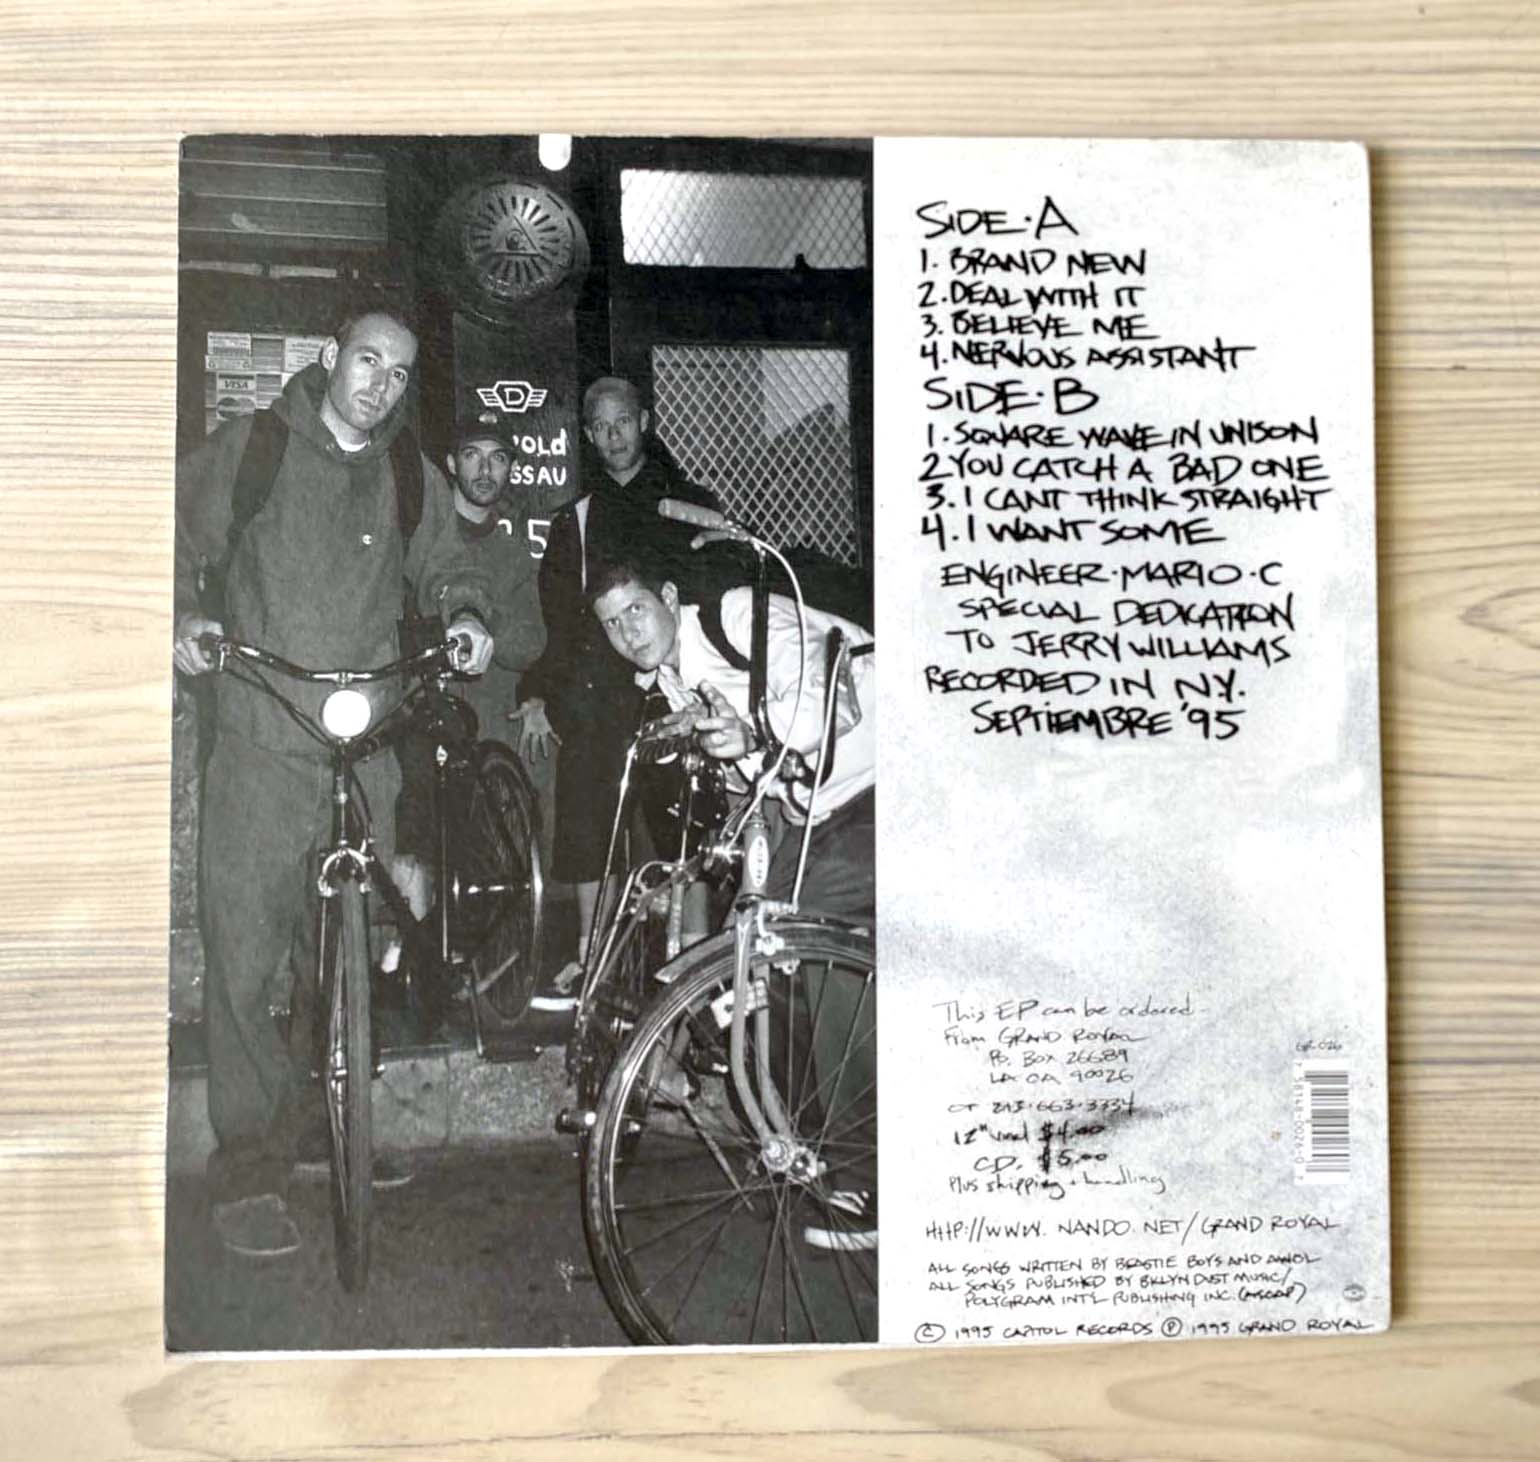 VISA
D
OLD
SSAU
5
SIDE·A
1. BRAND NEW
2. DEAL WITH IT
3. BELIEVE ME
4. NERVOUS ASSISTANT
SIDE·B
1. SQUARE WAVE IN UNISON
2 YOU CATCH A BAD ONE
3. I CANT THINK STRAIGHT
4. I WANT SOME
ENGINEER·MARIO·C
SPECIAL DEDICATION
TO JERRY WILLIAMS
RECORDED IN N.Y.
SEPTIEMBRE '95
This EP can be ordered
From GRAND ROYAL
P.O. BOX 26689
LA CA 90026
or 213·663·3334
12" vinyl $4.00
CD. $5.00
Plus shipping + handling
GR 026
HTTP://WWW.NANDO.NET/GRAND ROYAL
ALL SONGS WRITTEN BY BEASTIE BOYS AND AWOL
ALL SONGS PUBLISHED BY BKLYN DUST MUSIC/
POLYGRAM INT'L PUBLISHING INC. (ASCAP)
© 1995 CAPITOL RECORDS ℗ 1995 GRAND ROYAL